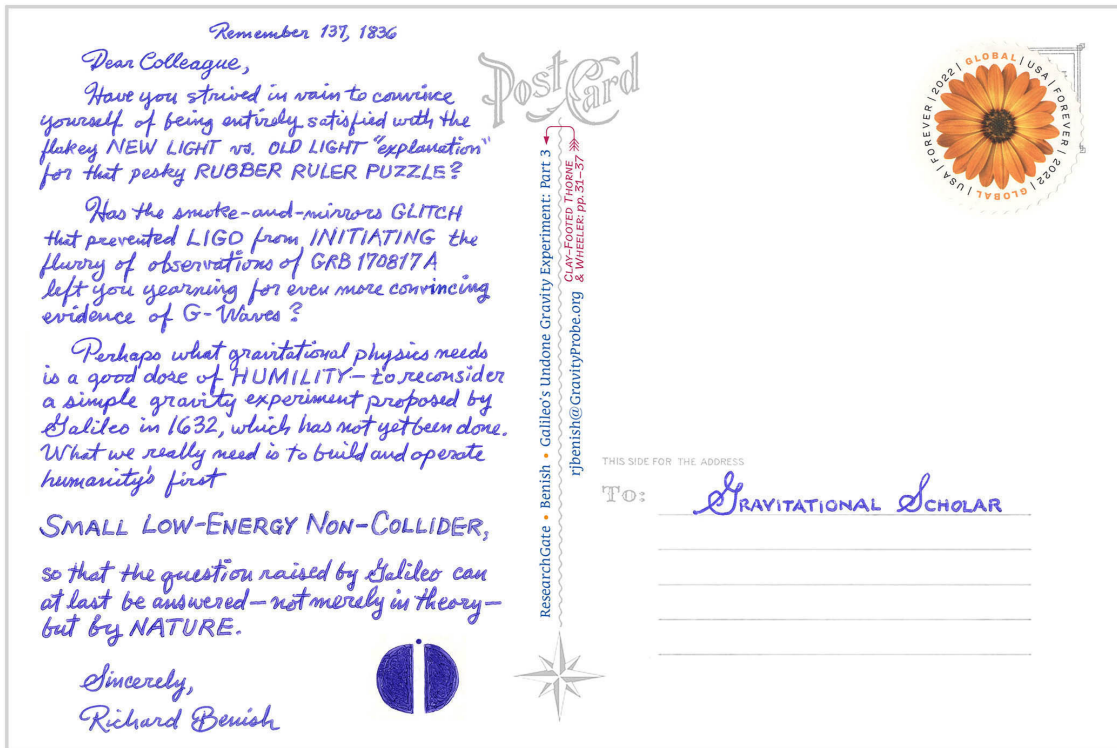 Remember 137, 1836
Dear Colleague,
Have you strived in vain to convince
yourself of being entirely satisfied with the
flakey NEW LIGHT vs. OLD LIGHT "explanation"
for that pesky RUBBER RULER PUZZLE?
Has the smoke-and-mirrors GLITCH
that prevented LIGO from INITIATING the
flurry of observations of GRB 170817A
left you yearning for even more convincing
evidence of G-Waves?
Perhaps what gravitational physics needs
is a good dose of HUMILITY—to reconsider
a simple gravity experiment proposed by
Galileo in 1632, which has not yet been done.
What we really need is to build and operate
humanity's first
SMALL LOW-ENERGY NON-COLLIDER,
so that the question raised by Galileo can
at last be answered—not merely in theory—
but by NATURE.
Sincerely,
Richard Benish
Post Card
ResearchGate • Benish • Galileo's Undone Gravity Experiment: Part 3
CLAY-FOOTED THORNE
& WHEELER: pp. 31–37
rjbenish@GravityProbe.org
USA | FOREVER | 2022 | GLOBAL | USA | FOREVER | 2022 | GLOBAL |
THIS SIDE FOR THE ADDRESS
To:
GRAVITATIONAL SCHOLAR